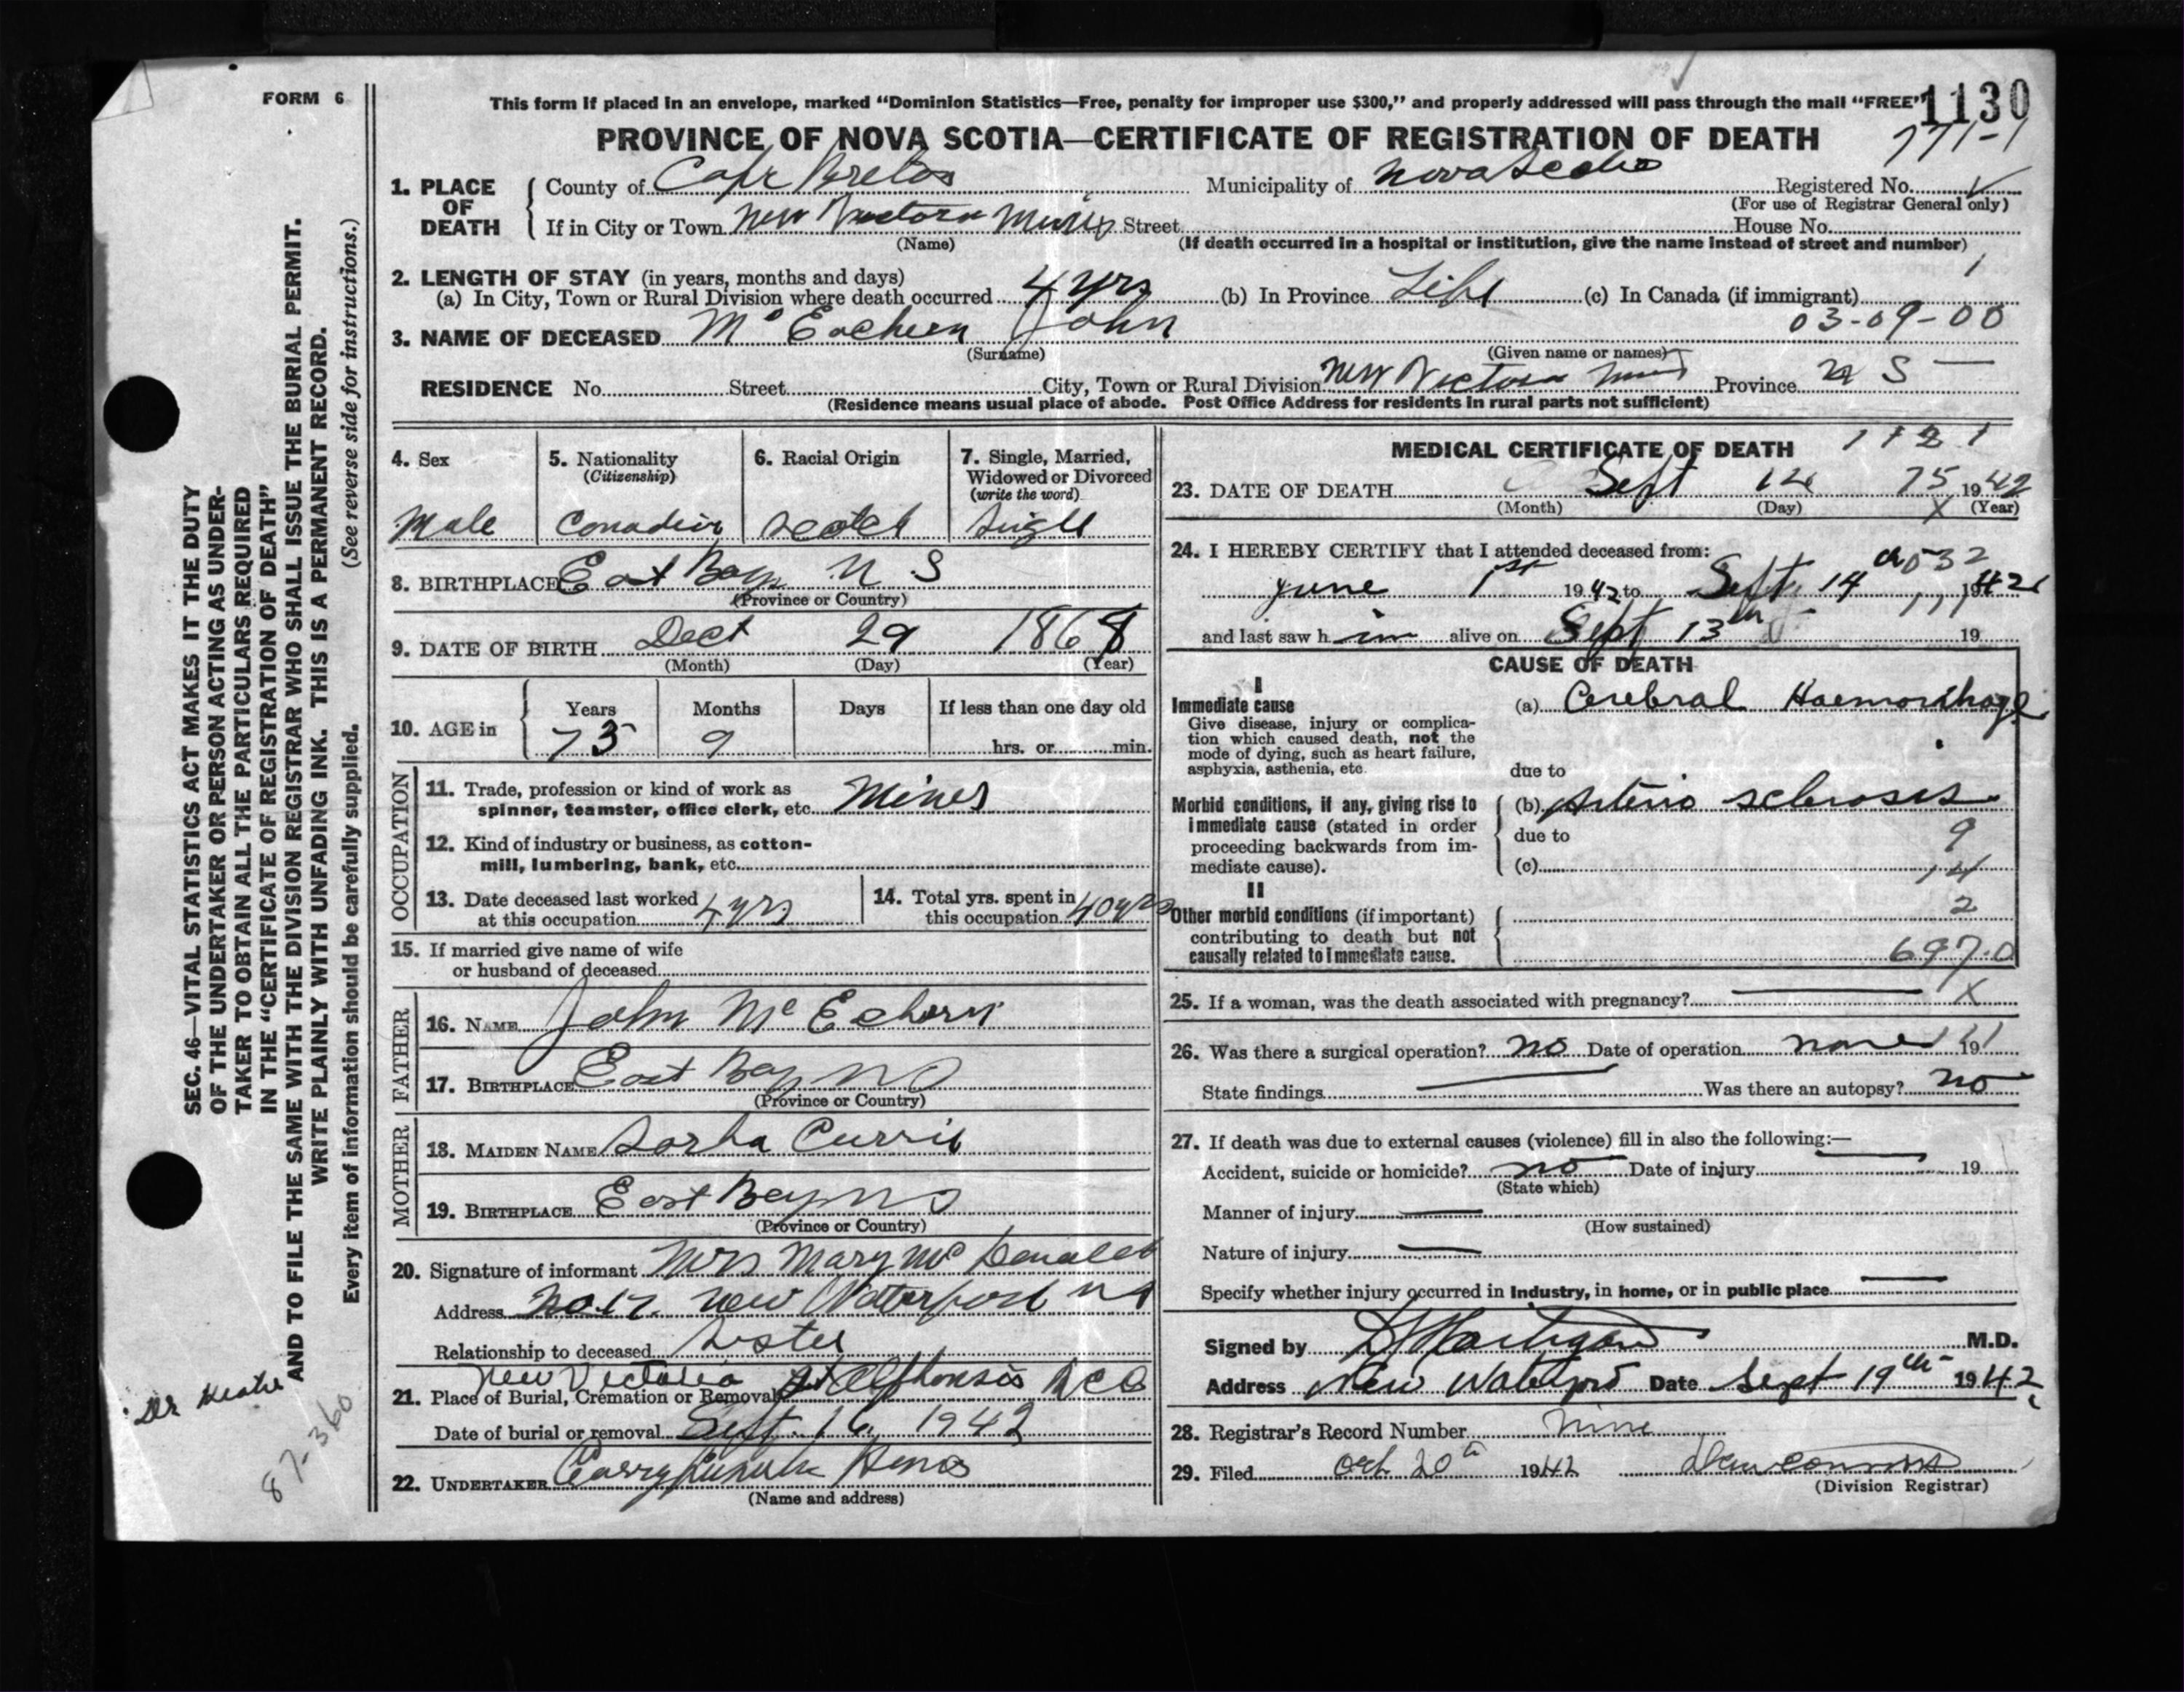 FORM 6
This form if placed in an envelope, marked “Dominion Statistics—Free, penalty for improper use $300,” and properly addressed will pass through the mail “FREE”
1130
PROVINCE OF NOVA SCOTIA—CERTIFICATE OF REGISTRATION OF DEATH
771-1
1. PLACE OF DEATH
County of Cape Breton Municipality of Nova Scotia Registered No.
(For use of Registrar General only)
If in City or Town New Victoria Mines Street House No.
(Name) (If death occurred in a hospital or institution, give the name instead of street and number)
2. LENGTH OF STAY (in years, months and days)
(a) In City, Town or Rural Division where death occurred 4 yrs (b) In Province Life (c) In Canada (if immigrant)
03-09-00
3. NAME OF DECEASED Mc Eachern John
(Surname) (Given name or names)
RESIDENCE No. Street City, Town or Rural Division New Victoria Mines Province N S
(Residence means usual place of abode. Post Office Address for residents in rural parts not sufficient)
4. Sex
Male
5. Nationality
(Citizenship)
Canadian
6. Racial Origin
Scotch
7. Single, Married,
Widowed or Divorced
(write the word)
Single
8. BIRTHPLACE East Bay N S
(Province or Country)
9. DATE OF BIRTH Dect 29 1868
(Month) (Day) (Year)
10. AGE in
Years Months Days If less than one day old
73 9 hrs. or min.
OCCUPATION
11. Trade, profession or kind of work as
spinner, teamster, office clerk, etc. Miner
12. Kind of industry or business, as cotton-
mill, lumbering, bank, etc.
13. Date deceased last worked
at this occupation 4 yrs
14. Total yrs. spent in
this occupation 40 yrs
15. If married give name of wife
or husband of deceased
FATHER
16. NAME John Mc Echern
17. BIRTHPLACE East Bay N S
(Province or Country)
MOTHER
18. MAIDEN NAME Sarha Currie
19. BIRTHPLACE East Bay N S
(Province or Country)
20. Signature of informant Mrs Mary Mc Donald
Address No. 12 New Waterford N S
Relationship to deceased Sister
New Victoria St Alfhonsis
21. Place of Burial, Cremation or Removal
Date of burial or removal Sept. 16 1942
22. UNDERTAKER
(Name and address)
MEDICAL CERTIFICATE OF DEATH
1 1 2 1
23. DATE OF DEATH Sept 14 75 1942
(Month) (Day) X (Year)
24. I HEREBY CERTIFY that I attended deceased from:
June 1st 1942 to Sept. 14 1942
and last saw him alive on Sept 13th 19
CAUSE OF DEATH
I
Immediate cause
Give disease, injury or complica-
tion which caused death, not the
mode of dying, such as heart failure,
asphyxia, asthenia, etc.
(a) Cerebral Haemorrhage
due to
Morbid conditions, if any, giving rise to
immediate cause (stated in order
proceeding backwards from im-
mediate cause).
(b) Arterio sclerosis
due to
9
(c)
14
II
Other morbid conditions (if important)
contributing to death but not
causally related to immediate cause.
2
697.0
25. If a woman, was the death associated with pregnancy? X
26. Was there a surgical operation? No Date of operation none 19
State findings Was there an autopsy? No
27. If death was due to external causes (violence) fill in also the following:—
Accident, suicide or homicide? no Date of injury 19
(State which)
Manner of injury
(How sustained)
Nature of injury
Specify whether injury occurred in Industry, in home, or in public place
Signed by M.D.
Address New Waterford Date Sept 19th 1942
28. Registrar’s Record Number Nine
29. Filed Oct 20th 1942
(Division Registrar)
SEC. 46—VITAL STATISTICS ACT MAKES IT THE DUTY
OF THE UNDERTAKER OR PERSON ACTING AS UNDER-
TAKER TO OBTAIN ALL THE PARTICULARS REQUIRED
IN THE “CERTIFICATE OF REGISTRATION OF DEATH”
AND TO FILE THE SAME WITH THE DIVISION REGISTRAR WHO SHALL ISSUE THE BURIAL PERMIT.
WRITE PLAINLY WITH UNFADING INK. THIS IS A PERMANENT RECORD.
Every item of information should be carefully supplied. (See reverse side for instructions.)
87-360